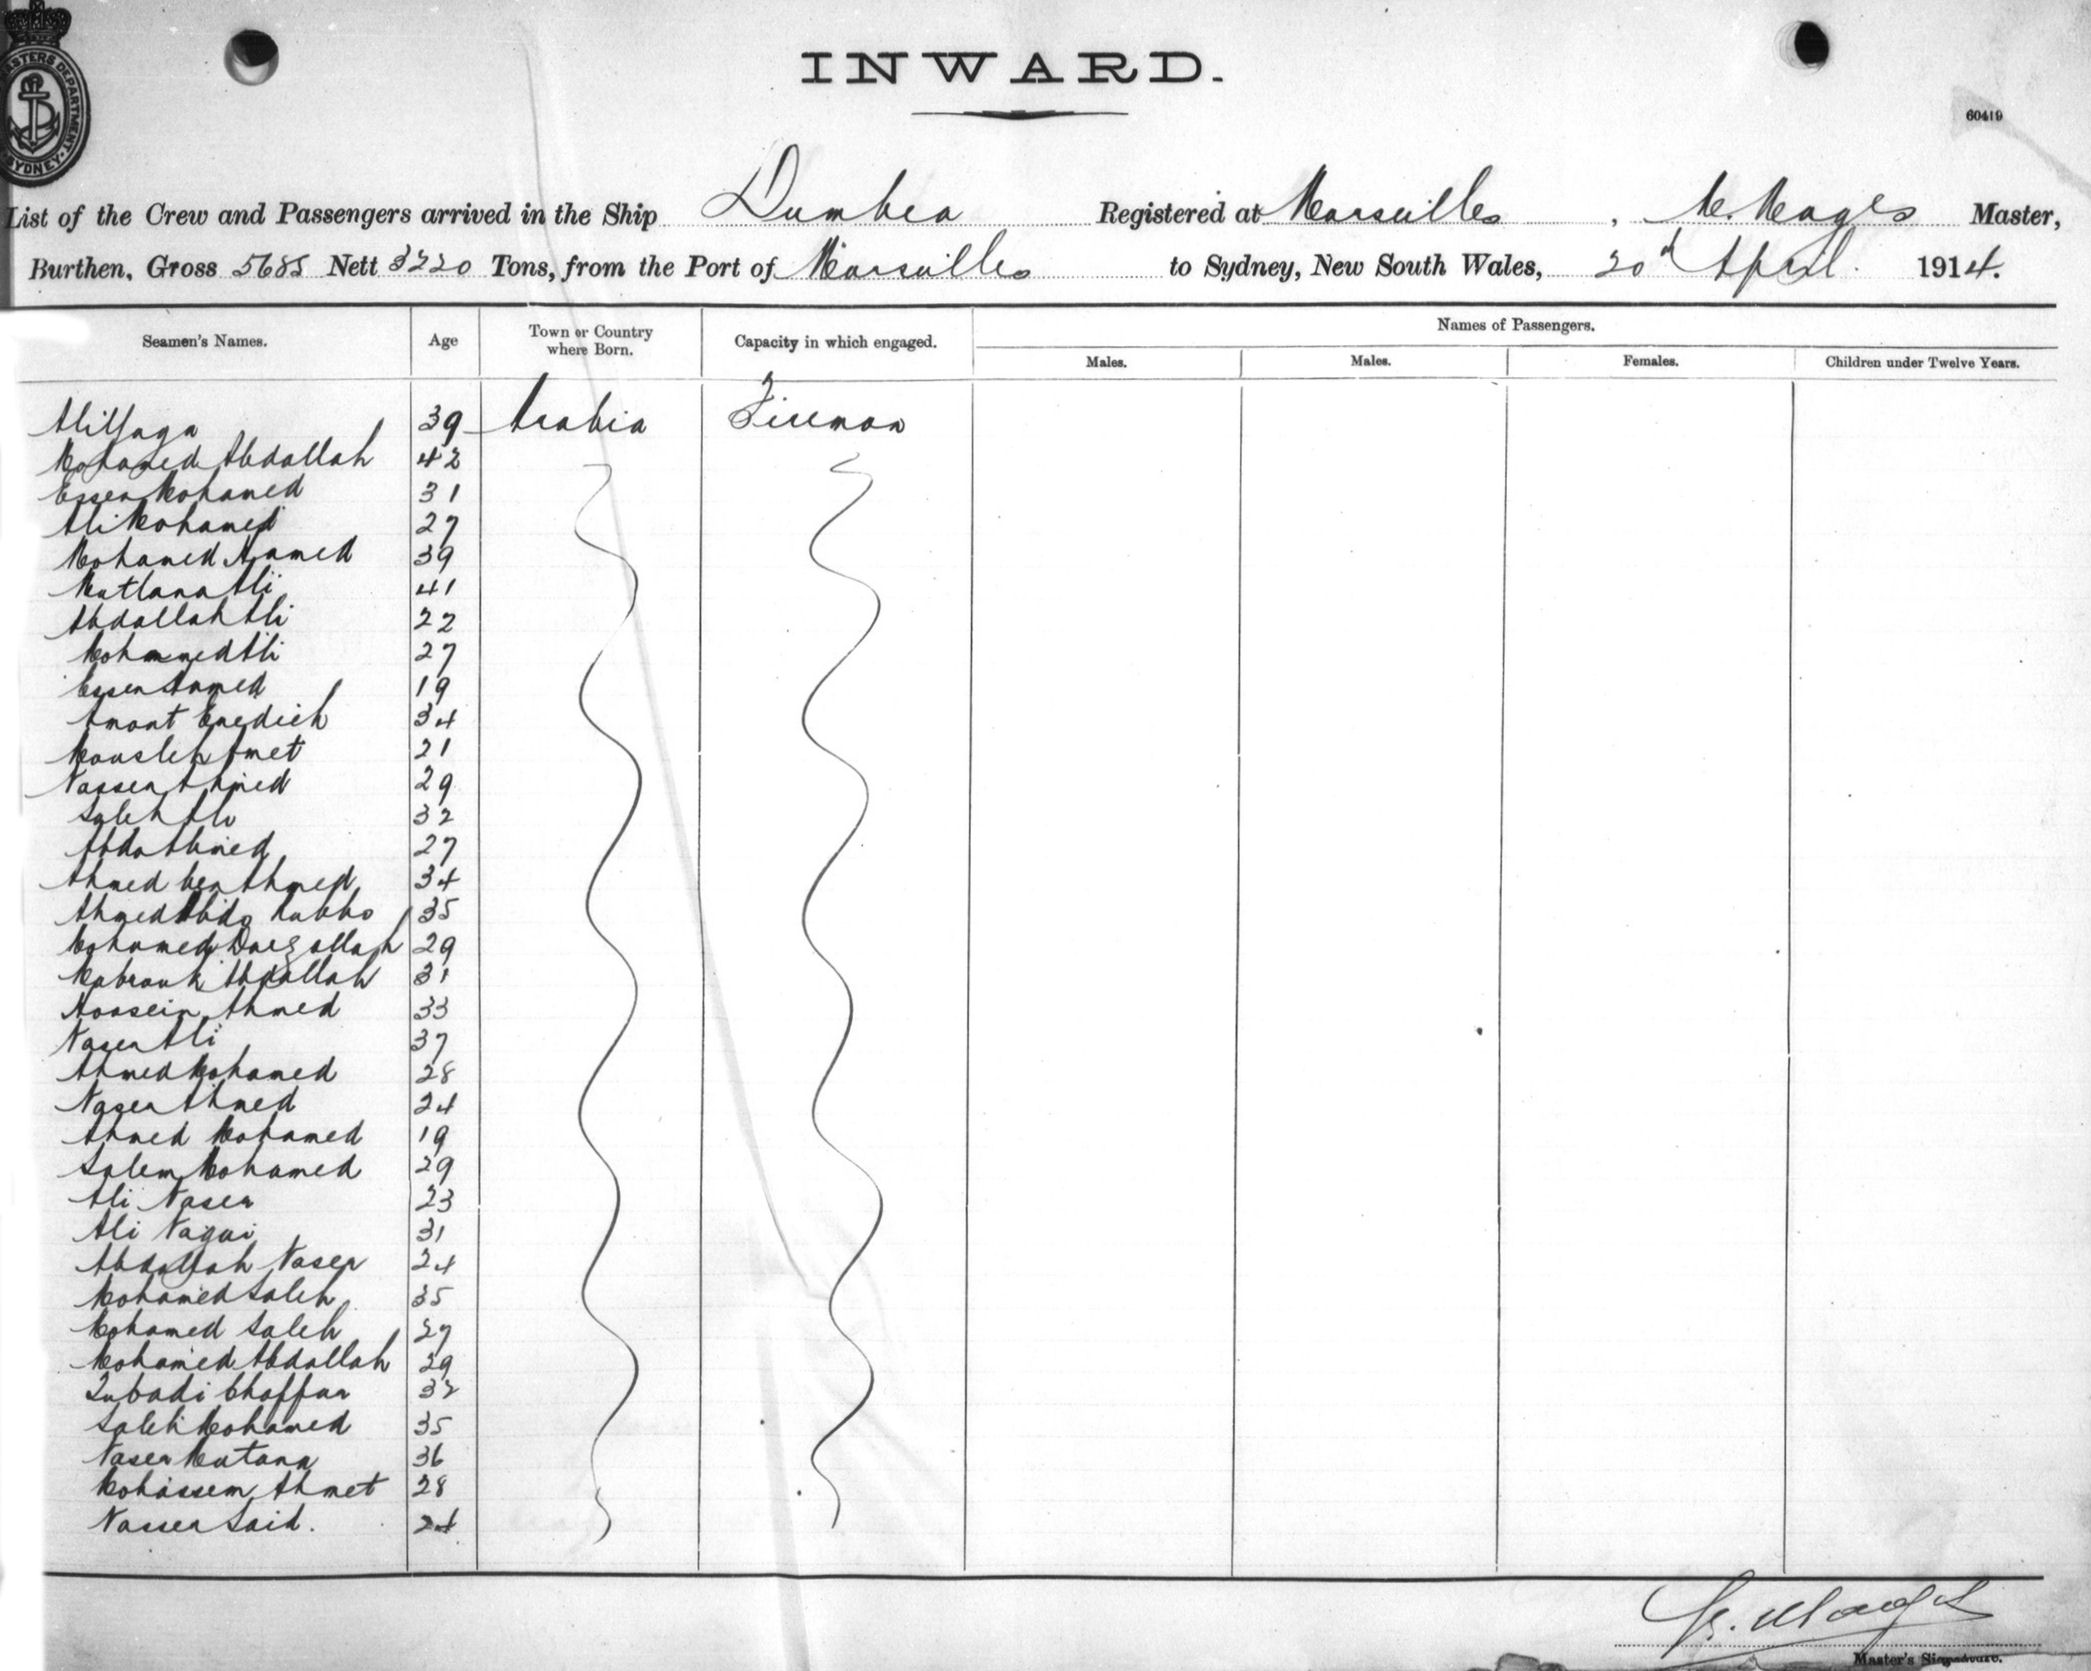 MASTERS DEPARTMENT
SYDNEY
INWARD.
60419
List of the Crew and Passengers arrived in the Ship Dumbea Registered at Marseilles, M. Mages Master,
Burthen, Gross 5685 Nett 3220 Tons, from the Port of Marseilles to Sydney, New South Wales, 20d April 1914.
Seamen's Names. Age Town or Country where Born. Capacity in which engaged. Names of Passengers.
Males. Males. Females. Children under Twelve Years.
39 Arabia Fireman
Mohamed Abdallah 42
Essen Mohamed 31
Ali Mohamed 27
Mohamed Hamed 39
Mutlana Ali 41
Abdallah Ali 22
Mohammed Ali 27
Essen Hamed 19
Amont 34
Mousleh Amet 21
Nassen Ahmed 29
Saleh Ali 32
Abdo Ahmed 27
Ahmed ben Ahmed 34
Ahmed Abdo Rubbo 35
Mohamed 29
Mabrouk Abdallah 31
Hossein Ahmed 33
Naser Ali 37
Ahmed Mohamed 28
Naser Ahmed 24
Ahmed Mohamed 19
Salem Mohamed 29
Ali Naser 23
Ali Nagui 31
Abdallah Naser 24
Mohamed Saleh 35
Mohamed Saleh 27
Mohamed Abdallah 29
Zubadi Chaffur 32
Saleh Mohamed 35
Naser Mutana 36
Mohassem Ahmet 28
Nasser Said. 24
Mages
Master's Signature.